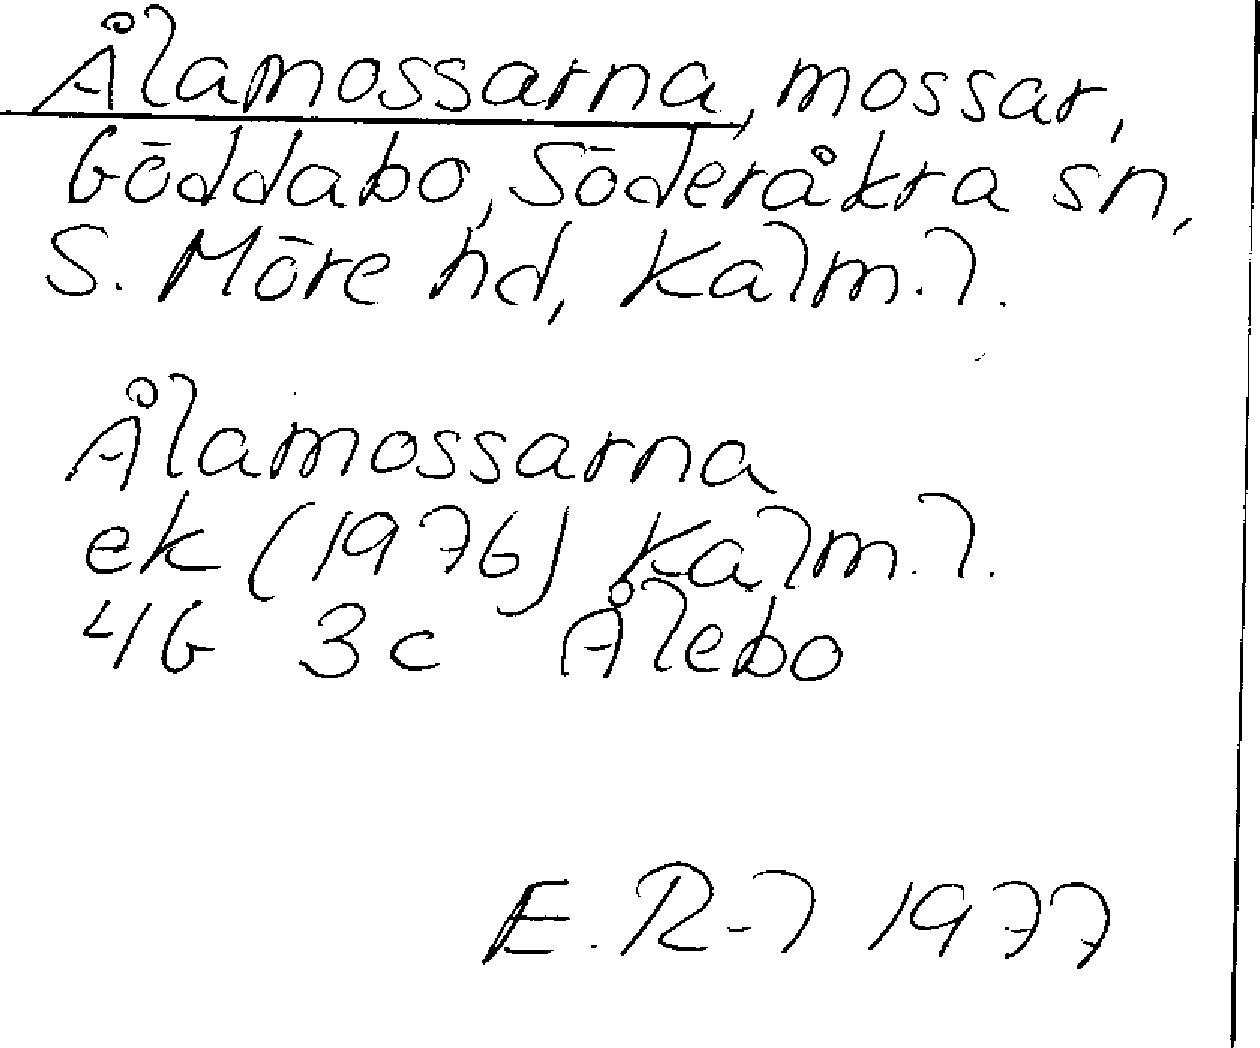 Ålamossarna, mossar,
Göddabo, Söderåkra sn,
S. Möre hd, Kalm. l.
Ålamossarna
ek (1976) Kalm. l.
4G 3c Ålebo
E. R-l 1977